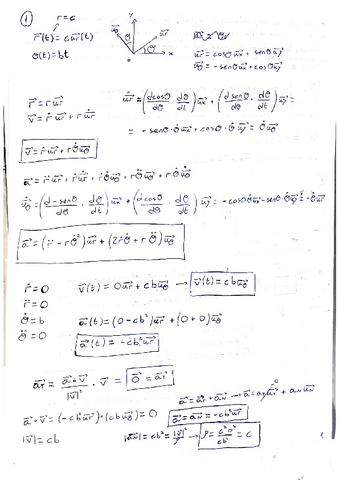 ①
r = c
r⃗(t) = c u⃗r(t)
θ(t) = bt
y
u⃗θ
u⃗r
θ
θ
x
u⃗r = cosθ u⃗x + senθ u⃗y
u⃗θ = -senθ u⃗x + cosθ u⃗y
r⃗ = r u⃗r
v⃗ = ṙ u⃗r + r u̇⃗r
v⃗ = ṙ u⃗r + r θ̇ u⃗θ
u̇⃗r = (d cosθ/dθ · dθ/dt) u⃗x + (d senθ/dθ · dθ/dt) u⃗y =
= -senθ · θ̇ u⃗x + cosθ · θ̇ u⃗y = θ̇ u⃗θ
a⃗ = r̈ u⃗r + ṙ u̇⃗r + ṙ θ̇ u⃗θ + r θ̈ u⃗θ + r θ̇ u̇⃗θ
u̇⃗θ = (d -senθ/dθ · dθ/dt) u⃗x + (d cosθ/dθ · dθ/dt) u⃗y = -cosθ θ̇ u⃗x - senθ θ̇ u⃗y = -θ̇ u⃗r
a⃗ = (r̈ - r θ̇²) u⃗r + (2ṙ θ̇ + r θ̈) u⃗θ
ṙ = 0
r̈ = 0
θ̇ = b
θ̈ = 0
v⃗(t) = 0 u⃗r + cb u⃗θ → v⃗(t) = cb u⃗θ
a⃗(t) = (0 - cb²) u⃗r + (0 + 0) u⃗θ
a⃗(t) = -cb² u⃗r
a⃗T = a⃗ · v⃗ / |v⃗|² · v⃗ = 0⃗ = a⃗T
a⃗ = a⃗T + a⃗N → a⃗ = aT u⃗T + aN u⃗N
0
a⃗ · v⃗ = (-cb² u⃗r) · (cb u⃗θ) = 0
a⃗ = a⃗N = -cb² u⃗r
|v⃗| = cb
|a⃗N| = cb² = |v⃗|²/ρ → ρ = c²b²/cb² = c